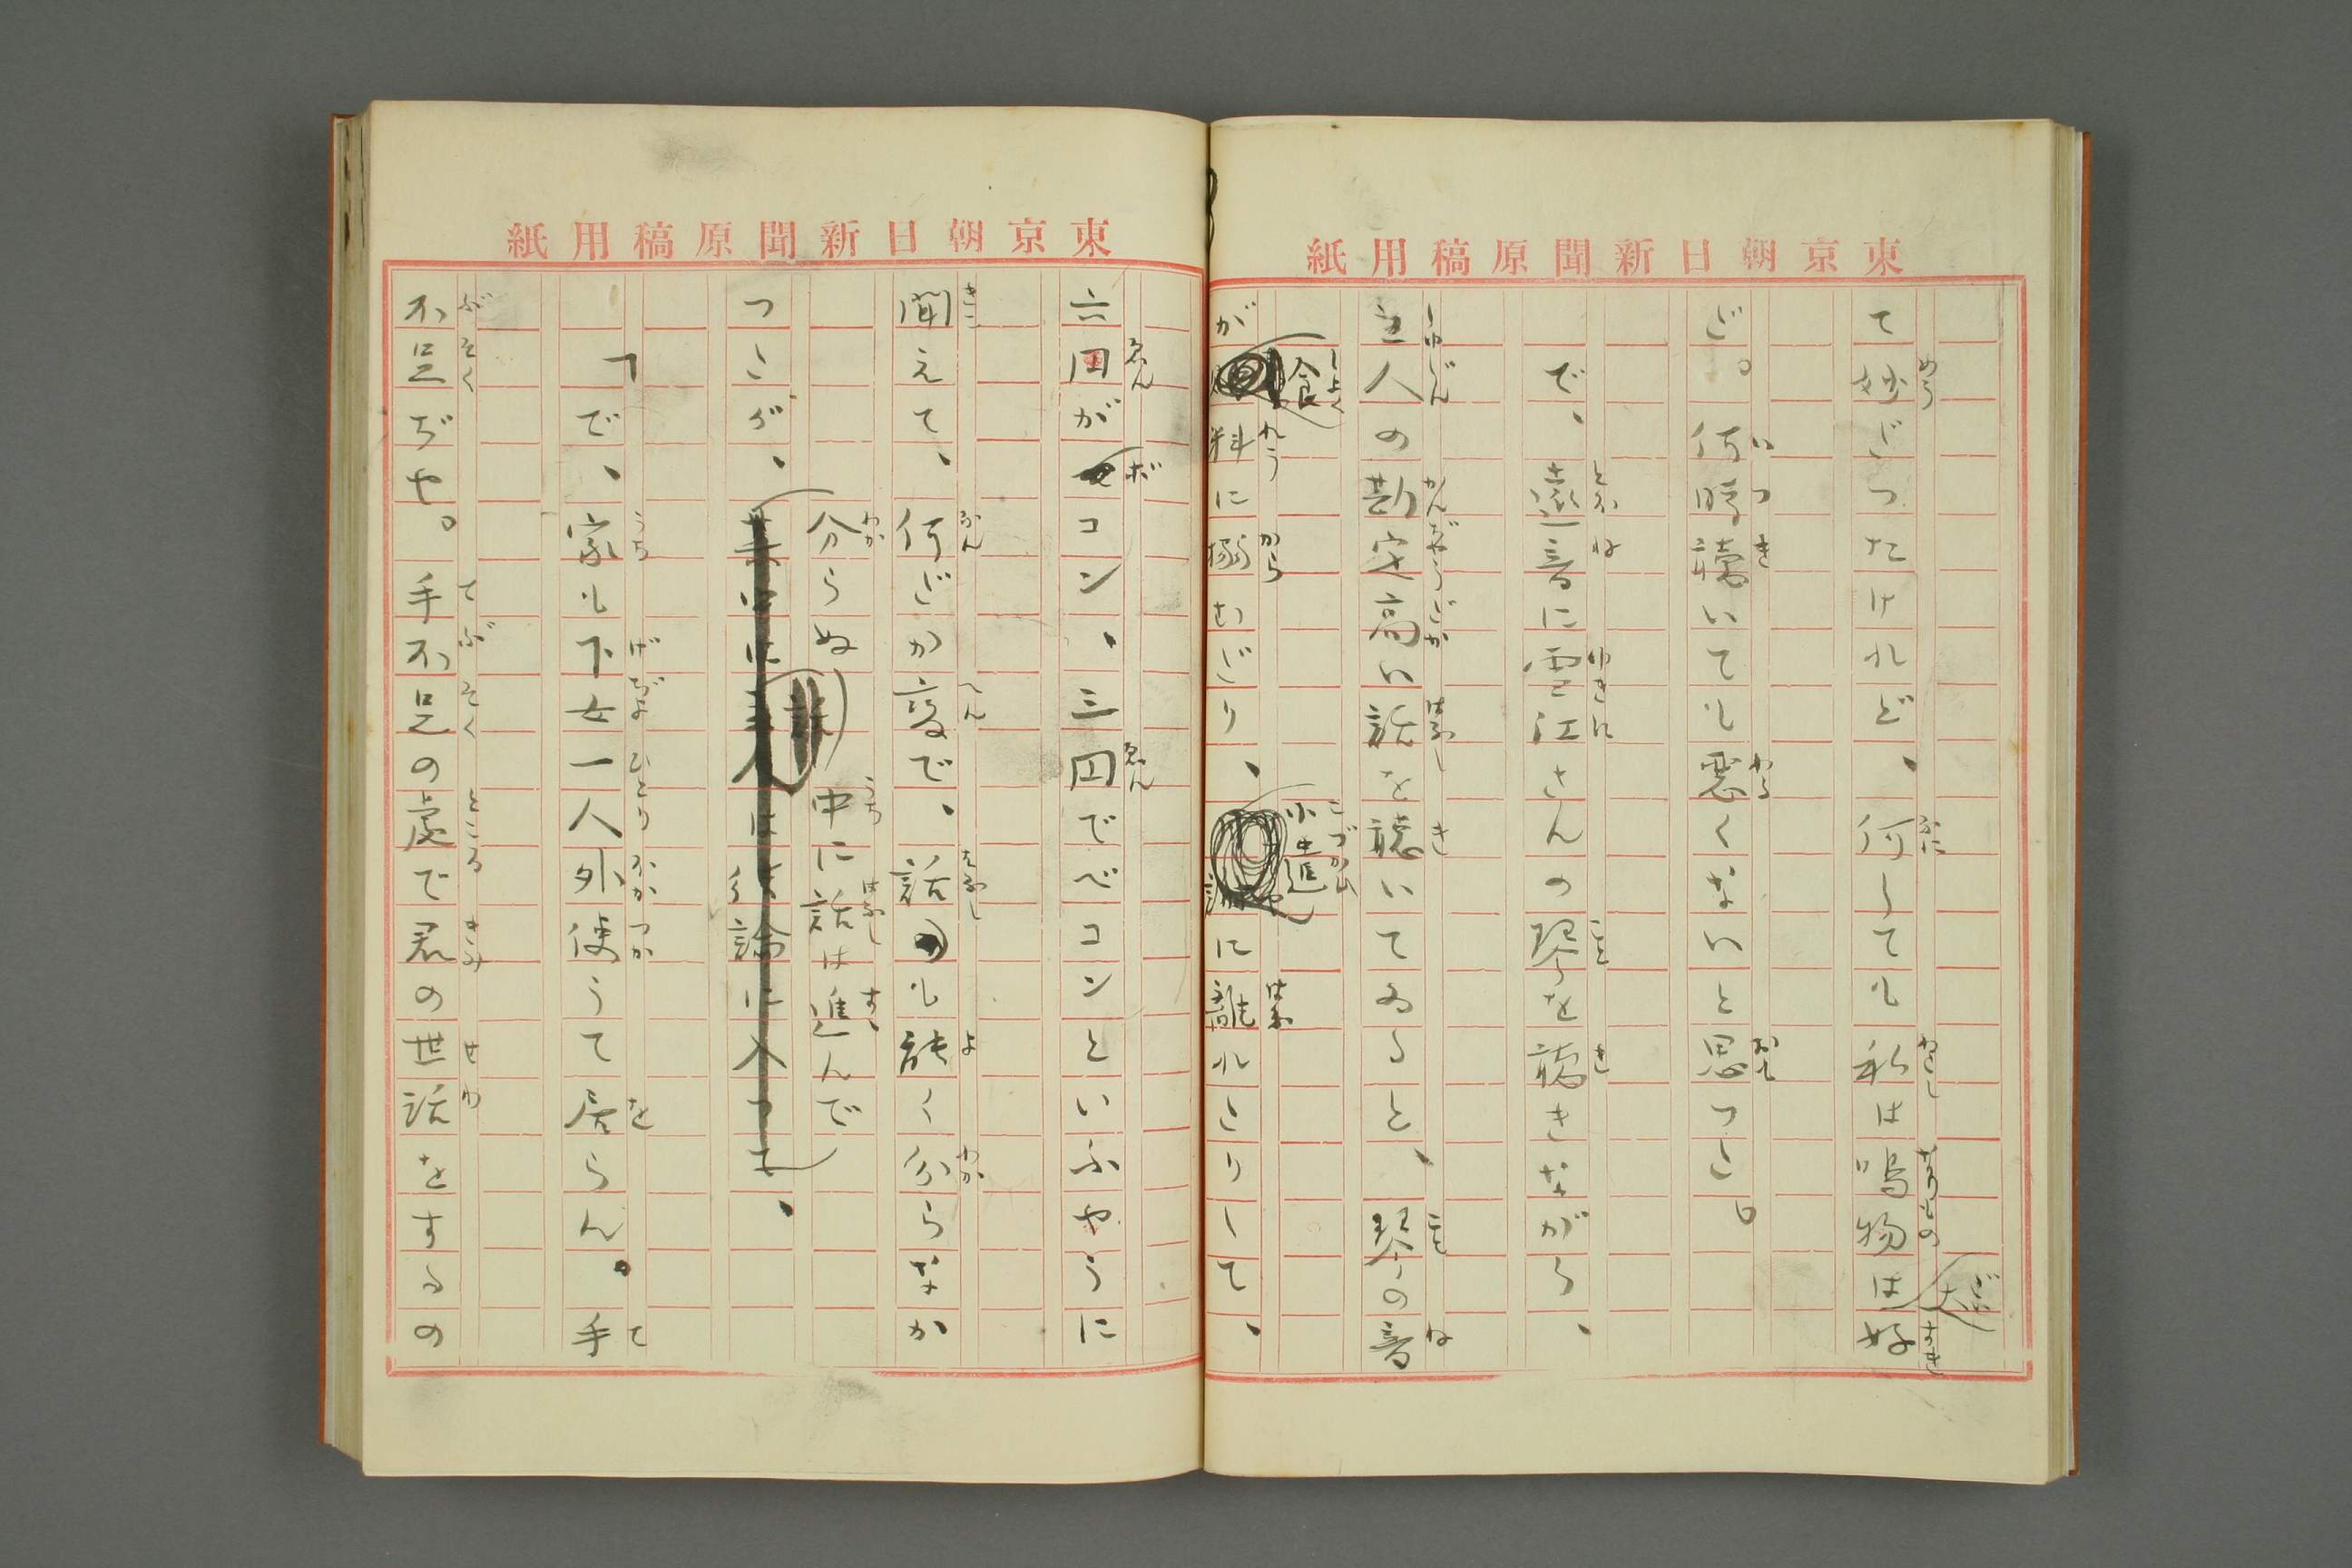 東京朝日新聞原稿用紙
て妙だつたけれど、何しても私は鳴物は大好
だ。何時聽いても悪くないと思つた。
で、遠音に雪江さんの琴を聽きながら、
主人の勘定高い話を聽いてゐると、琴の音
が食料に搦むだり、小遣に離れたりして、
東京朝日新聞原稿用紙
六円がボコン、三円でベコンといふやうに
聞えて、何だか変で、話も能く分らなか
つたが、分らぬ中に話は進んで
「で、家も下女一人外使うて居らん。手
不足ぢや。手不足の處で君の世話をするの